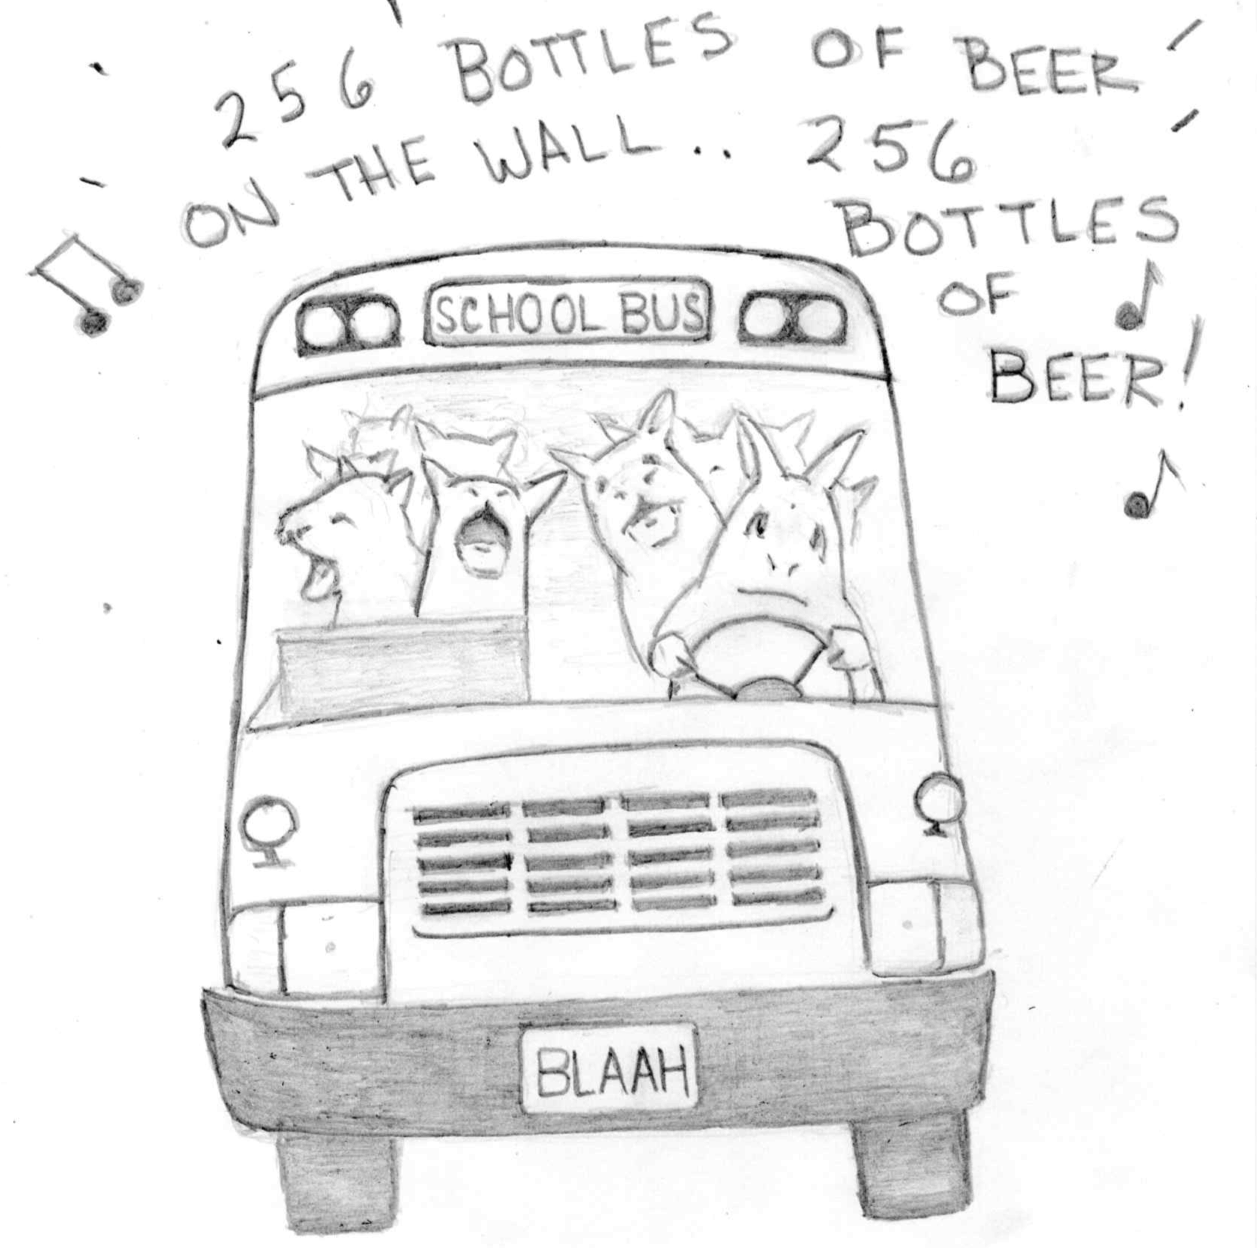 256 BOTTLES OF BEER
ON THE WALL.. 256
BOTTLES
OF
BEER!
SCHOOL BUS
BLAAH